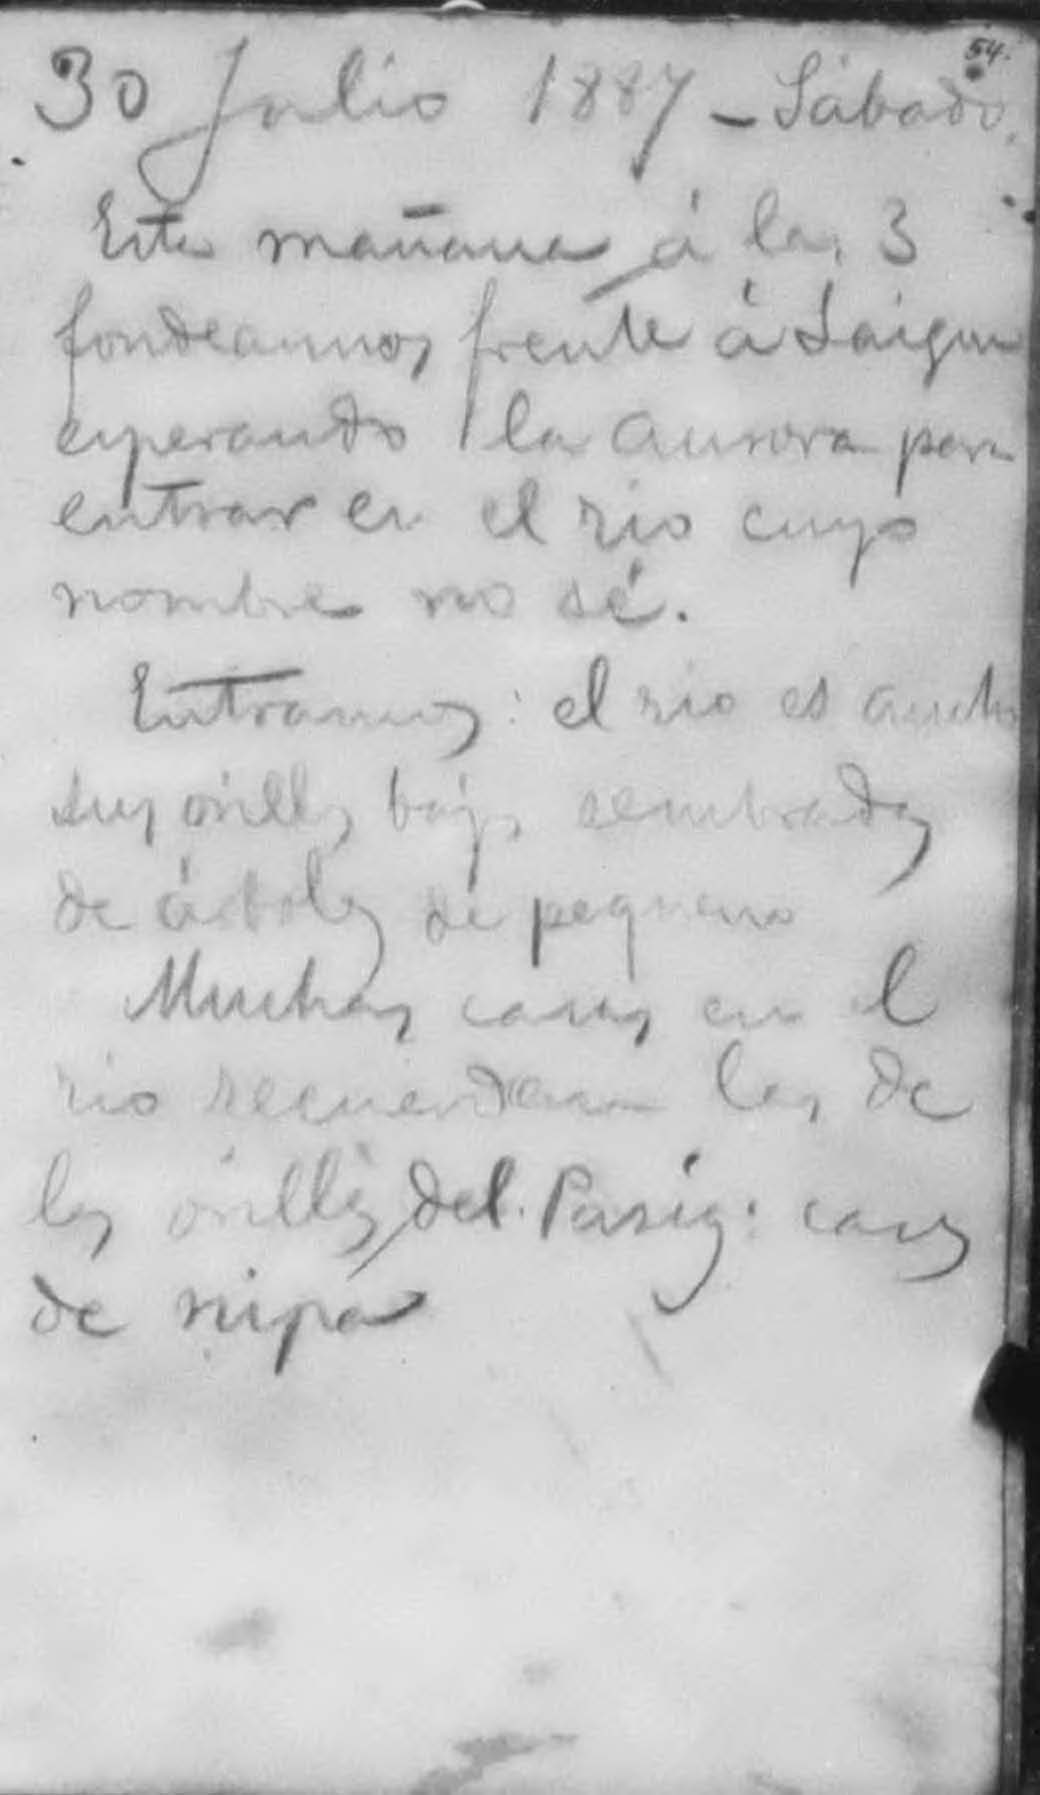 54.
30 Julio 1887 - Sábado.
Esta mañana á las 3
fondeamos frente á Saigon
esperando la aurora para
entrar en el rio cuyo
nombre no sé.
Entramos: el rio es ancho
sus orillas bajas sembradas
de árboles de pequeno
Muchas casas en el
rio recuerdan las de
las orillas del Pasig: casas
de nipa